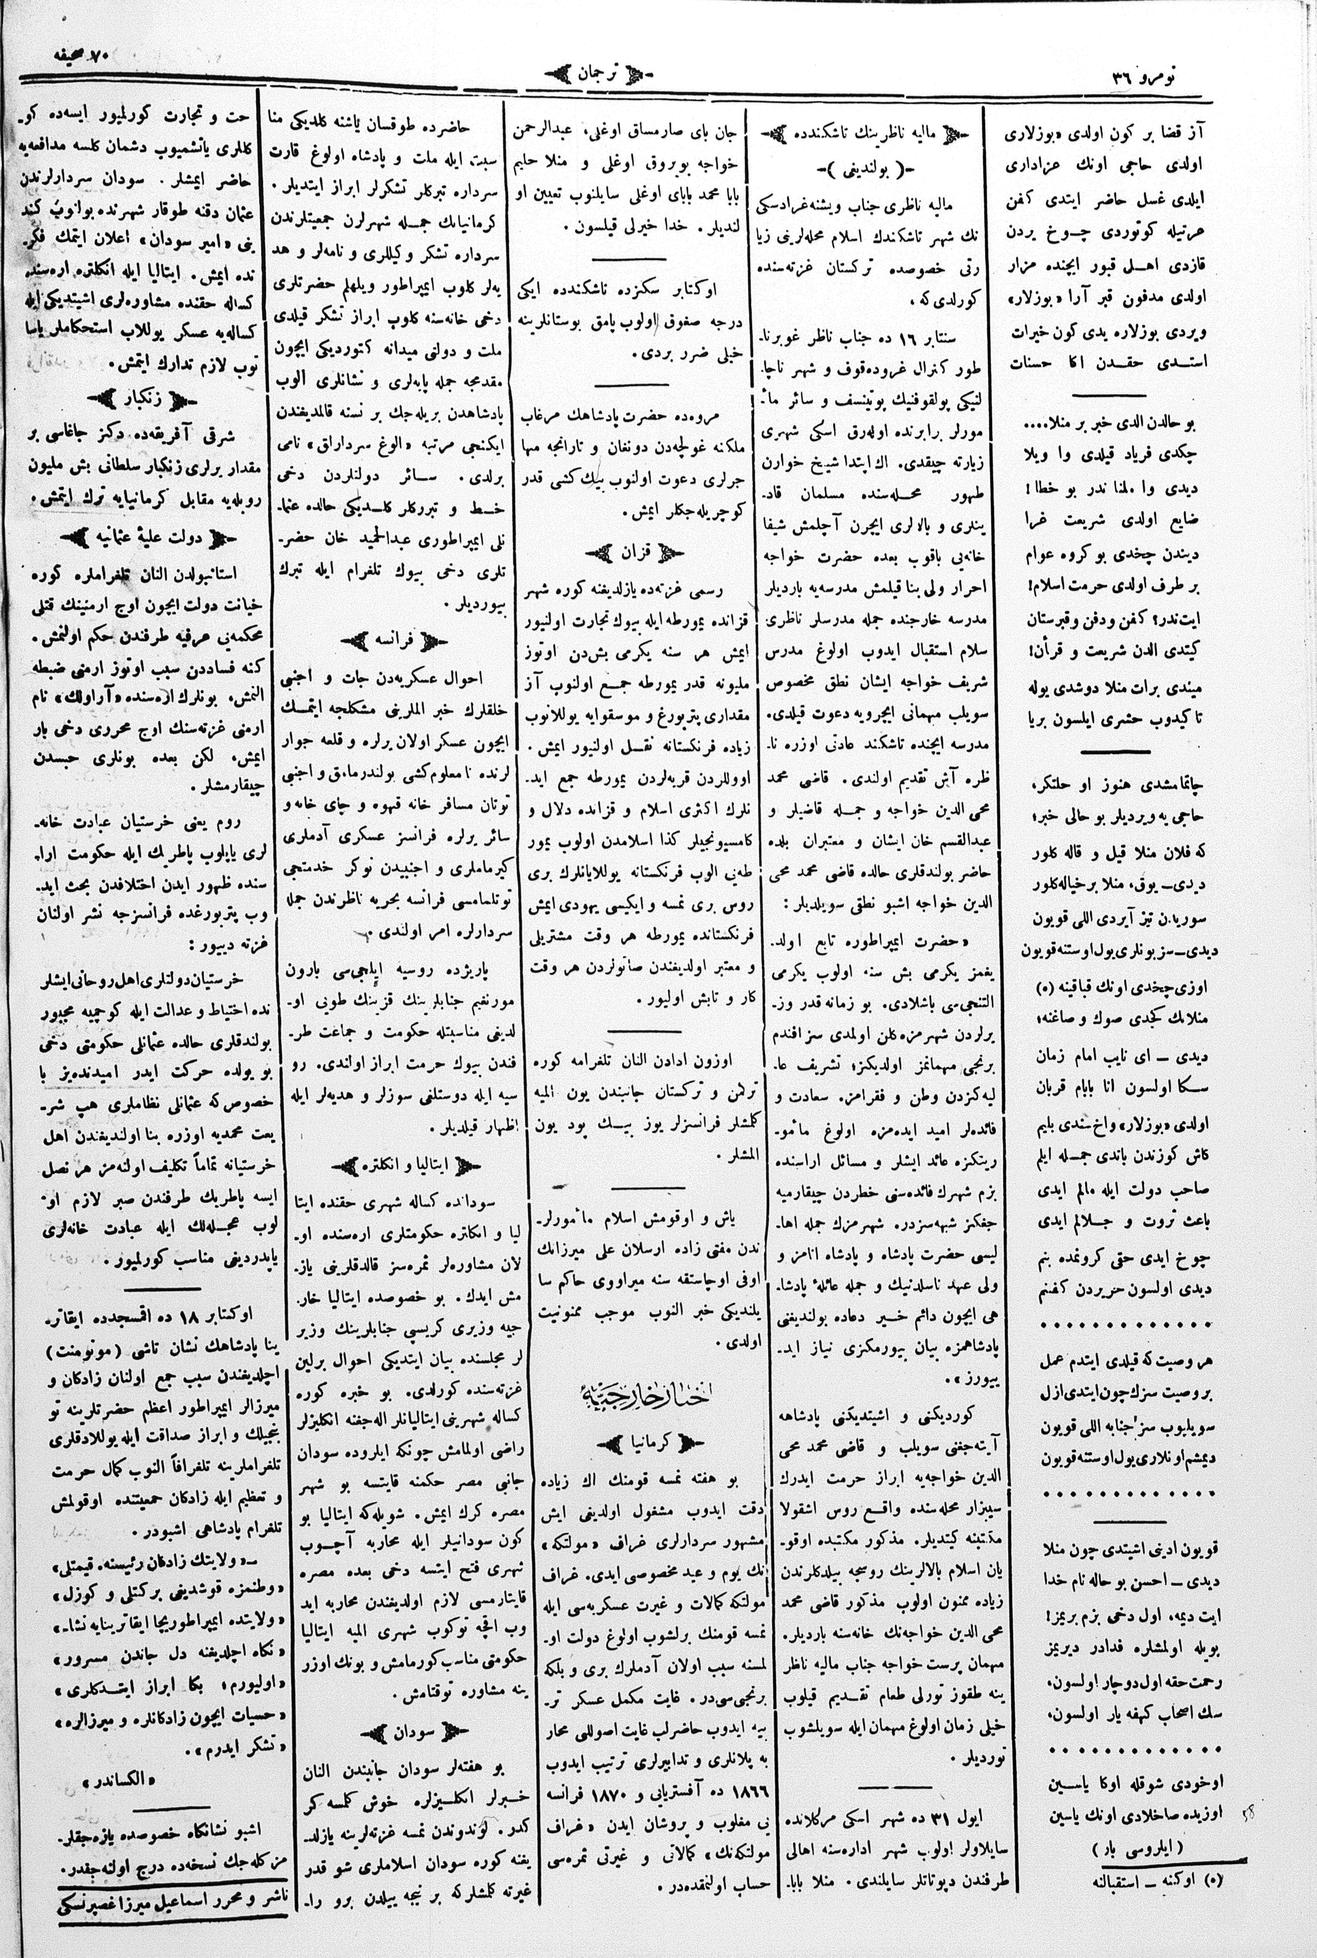 نومرو ٣٦
ترجمان
٧٠ صحيفه
آز قضا بر كون اولدى «بوزلارى
اولدى حاجى اونك عزادارى
ايلدى غسل حاضر ايتدى كفن
هرتيله كوتوردى چوخ يردن
قازدى اهل قبور ايچنده مزار
اولدى مدفون قبر آرا «بوزلار»
ويردى بوزلاره يدى كون خيرات
استدى حقدن اكا حسنات
بو حالدن الدى خبر بر منلا....
چكدى فرياد قيلدى وا ويلا
ديدى وا ملتا ندر بو خطا!
ضايع اولدى شريعت غرا
ديندن چخدى بو كروه عوام
بر طرف اولدى حرمت اسلام!
ايت ندر؟ كفن ودفن وقبرستان
كيتدى الدن شريعت و قرأن!
ميندى برات منلا دوشدى يوله
تا كيدوب حشرى ايلسون برپا
چاتمامشدى هنوز او حلتكر،
حاجى يه ويرديلر بو حالى خبر؛
كه فلان منلا قيل و قاله كلور
ديدى — يوق، منلا بر خياله كلور
سوريدن تيز آيردى اللى قويون
ديدى — ز بونلرى يول اوستنه قويون
اوزى چخدى اونك قباقينه (٥)
منلانك كچدى صوك و صاغنه؛
ديدى — اى نايب امام زمان
سكا اولسون انا بابام قربان
اولدى «بوزلار» واخ سندى بليم
كاش كوزندن ياندى جمله ايلم
صاحب دولت ايله مالم ايدى
باعث ثروت و جلالم ايدى
چوخ ايدى حتى كرونمده بنم
ديدى اولسون حريردن كفنم
هر وصيت كه قيلدى ايتدم عمل
بر وصيت سزك چون ايتدى ازل
سويليوب سز جنابه اللى قويون
ديمشم اونلارى يول اوستنه قويون
قويون ادينى اشيتدى چون منلا
ديدى — احسن بو حاله نام خدا
ايت ديمه، اول دخى بزم بريمز!
بويله اولمشلره قدادر ديريمز
رحمت حقه اول دوچار اولسون،
سك اصحاب كهفه يار اولسون،
اوخودى شوقله اوكا ياسين
اوزيده صاخلادى اونك ياسين
( ايلروسى بار )
(٥) اوكنه — استقبالنه
ماليه ناظرينك تاشكندده
-( بولنديغى )-
ماليه ناظرى جناب ويشنه غرادسكى
نك شهر تاشكندك اسلام محله لرينى زيا
رتى خصوصده تركستان غزته سنده
كورلدى كه ،
سنتابر ١٦ ده جناب ناظر غوبرنا-
طور كنرال غروده قوف و شهر ناچا-
لنيكى پولقوفنيك پوتينسف و سائر مأ-
مورلر برابرنده اوله رق اسكى شهرى
زيارته چيقدى. اك ابتدا شيخ خوارن
طهور محله سنده مسلمان قاد-
ينلرى و بالالرى ايچون آچلمش شيفا
خانه يى باقوب بعده حضرت خواجه
احرار ولى بنا قيلمش مدرسه يه بارديلر
مدرسه خارجنده جمله مدرسلر ناظرى
سلام استقبال ايدوب اولوغ مدرس
شريف خواجه ايشان نطق مخصوص
سويلب مهمانى ايچرويه دعوت قيلدى.
مدرسه ايچنده تاشكند عادتى اوزره نا-
ظره آش تقديم اولندى. قاضى محمد
محى الدين خواجه و جمله قاضيلر و
عبدالقسم خان ايشان و معتبران بلده
حاضر بولندقلرى حالده قاضى محمد محى
الدين خواجه اشبو نطقى سويلديلر:
«حضرت ايمپراطوره تابع اولد-
يغمز يكرمى بش سنه اولوب يكرمى
التنجى سى باشلادى. بو زمانه قدر وز-
يرلردن شهرمزه كلن اولمدى سز افندم
برنجى مهمانمز اولديكز؛ تشريف عا-
ليه كزدن وطن و فقرامز. سعادت و
فائده لر اميد ايده مزه اولوغ مأمو-
ريتكزه عائد ايشلر و مسائل اراسنده
بزم شهرك فائده سنى خطردن چيقارميه
جفكز شبهه سزدر. شهرمزك جمله اها-
ليسى حضرت پادشاه و پادشاه انامز و
ولى عهد ناسلدنيك و جمله عائلهٔ پادشا-
هى ايچون دائم خير دعاده بولنديغنى
پادشاهمزه بيان بيورمكزى نياز ايد-
ييورز».
كورديكنى و اشيتديكنى پادشاهه
آيته جغنى سويلب و قاضى محمد محى
الدين خواجه يه ابراز حرمت ايدرك
سيبزار محله سنده واقع روس اشقولا
مكتبنه كيتديلر. مذكور مكتبده اوقو-
يان اسلام بالالرينك روسجه بيلدكلرندن
زياده ممنون اولوب مذكور قاضى محمد
محى الدين خواجه نك خانه سنه بارديلر.
مهمان پرست خواجه جناب ماليه ناظر
ينه طقوز تورلى طعام تقديم قيلوب
خيلى زمان اولوغ مهمان ايله سويلشوب
تورديلر .
ايول ٣١ ده شهر اسكى مركلانده
سايلاولر اولوب شهر اداره سنه اهالى
طرفندن دپوتاتلر سايلندى. منلا بابا-
جان باى صارمساق اوغلى، عبدالرحمن
خواجه بوبروق اوغلى و منلا حليم
بابا محمد باباى اوغلى سايلنوب تعيين او
لنديلر. خدا خيرلى قيلسون .
اوكتابر سكزده تاشكندده ايكى
درجه صفوق اولوب پامق بوستانلرينه
خيلى ضرر بردى.
مروه ده حضرت پادشاهك مرغاب
ملكنه غولجه دن دونغان و تارانجه مها
جرلرى دعوت اولنوب بيك كشى قدر
كوچريله جكلر ايمش .
قزان
رسمى غزته ده يازلديغنه كوره شهر
قزانده يمورطه ايله بيوك تجارت اولنيور
ايمش هر سنه يكرمى بش دن اوتوز
مليونه قدر يمورطه جمع اولنوب آز
مقدارى پتربورغ و موسقوايه يوللانوب
زياده فرنكستانه نقل اولنيور ايمش .
اووللردن قريه لردن يمورطه جمع ايد-
نلرك اكثرى اسلام و قزانده دلال و
كامسيونجيلر كذا اسلامدن اولوب يمور
طه يى الوب فرنكستانه يوللايانلرك برى
روس برى نمسه و ايكيسى يهودى ايمش
فرنكستانده يمورطه هر وقت مشتريلى
و معتبر اولديغندن صاتولردن هر وقت
كار و تابش اوليور.
اوزون ادادن النان تلغرامه كوره
تركمن و تركستان جانبندن يون الميه
كلمشلر فرانسزلر يوز بيك پود يون
المشلر .
ياش و اوقومش اسلام مأمورلر-
ندن مفتى زاده ارسلان على ميرزانك
اوفى اوچاستقه سنه ميراووى حاكم سا
يلنديكى خبر النوب موجب ممنونيت
اولدى.
اخبار خارجيه
كرمانيا
بو هفته نمسه قومنك اك زياده
دقت ايدوب مشغول اولديغى ايش
مشهور سردارلرى غراف «مولتكه»
نك يوم و عيد مخصوصى ايدى، غراف
مولتكه كمالات و غيرت عسكريه سى ايله
نمسه قومنك برلشوب اولوغ دولت او-
لمسنه سبب اولان آدملرك برى و بلكه
برنجى سى در. غايت مكمل عسكر تر-
بيه ايدوب حاضرلب غايت اصوللى محار
به پلانلرى و تدابيرلرى ترتيب ايدوب
١٨٦٦ ده آفستريايى و ١٨٧٠ فرانسه
يى مغلوب و پروشان ايدن «غراف
مولتكه نك» كمالاتى و غيرتى ثمره سى
حساب اولنمقده در.
حاضرده طوقسان ياشنه كلديكى منا
سبت ايله ملت و پادشاه اولوغ قارت
سرداره تبركلر تشكرلر ابراز ايتديلر.
كرمانيانك جمله شهرلرن جمعيتلرندن
سرداره تشكر وكيللرى و نامه لر و هد
يه لر كلوب ايمپراطور ويلهلم حضرتلرى
دخى خانه سنه كلوب ابراز تشكر قيلدى
ملت و دولتى ميدانه كتورديكى ايچون
مقدمجه جمله پايه لرى و نشانلرى الوب
پادشاهدن بريله جك بر نسته قالمديغندن
ايكنجى مرتبه «الوغ سردارلق» نامى
برلدى. سائر دولتلردن دخى
خط و تبركلر كلديكى حالده عثما-
نلى ايمپراطورى عبدالحميد خان حضر-
تلرى دخى بيوك تلغرام ايله تبرك
بيورديلر .
فرانسه
احوال عسكريه دن جات و اجنبى
خلقلرك خبر الملرينى مشكلجه ايتمك
ايچون عسكر اولان يرلره و قلعه جوار
لرنده نامعلوم كشى بولندرماءق و اجنبى
توتان مسافر خانه قهوه و چاى خانه و
سائر يرلره فرانسز عسكرى آدملرى
كيرماملرى و اجنبيدن نوكر خدمتجى
توتلمامسى فرانسه بحريه ناظرندن جمله
سردارلره امر اولندى.
پاريژده روسيه ايلچى سى بارون
مورنغيم جنابلرينك قزينك طوئى او-
لديغى مناسبتله حكومت و جماعت طر-
فندن بيوك حرمت ابراز اولندى. رو
سيه ايله دوستلغى سوزلر و هديه لر ايله
اظهار قيلديلر.
ايتاليا و انكلتره
سودانده كساله شهرى حقنده ايتا
ليا و انكلتره حكومتلرى اره سنده او-
لان مشاوره لر ثمره سز قالدقلرينى ياز-
مش ايدك. بو خصوصده ايتاليا خار-
جيه وزيرى كريسپى جنابلرينك وزير
لر مجلسنده بيان ايتديكى احوال برلين
غزته سنده كورلدى. بو خبره كوره
كساله شهرينى ايتاليانلر اله جغنه انكليزلر
راضى اولمامش چونكه ايلروده سودان
جانبى مصر حكمنه قايتسه بو شهر
مصره كرك ايمش. شويله كه ايتاليا بو
كون سودانيلر ايله محاربه آچوب
شهرى فتح ايتسه دخى بعده مصره
قايتارمسى لازم اولديغندن محاربه ايد
وب اقچه توكوب شهرى الميه ايتاليا
حكومتى مناسب كورمامش و بونك اوزر
ينه مشاوره توقتامش.
سودان
بو هفته لر سودان جانبندن النان
خبرلر انكليزلره خوش كلمسه كر
كدر. لوندوندن نمسه غزته لرينه يازلد-
يغنه كوره سودان اسلاملرى شو قدر
غيرته كلمشلر كه بر نيچه ييلدن برو را-
حت و تجارت كورلميور ايسه ده كو-
كللرى ياتشميوب دشمان كلسه مدافعه يه
حاضر ايمشلر. سودان سردارلرندن
عثمان دقنه طوقار شهرنده بولنوب كند
ينى «امير سودان» اعلان ايتمك فكر-
نده ايمش. ايتاليا ايله انكلتره اره سنده
كساله حقنده مشاوره لرى اشيتديكى ايله
كساله يه عسكر يوللاب استحكاملر ياسا
توب لازم تدارك ايتمش.
زنكبار
شرقى آفريقه ده دكز جاغاسى بر
مقدار يرلرى زنكبار سلطانى بش مليون
روبله يه مقابل كرمانيايه ترك ايتمش.
دولت عليهٔ عثمانيه
استانبولدن النان تلغراملره كوره
خيانت دولت ايچون اوچ ارمنينك قتلى
محكمه يى عرفيه طرفندن حكم اولنمش.
كنه فساددن سبب اوتوز ارمنى ضبطه
النمش. بونلرك اره سنده «آراولك» نام
ارمنى غزته سنك اوچ محررى دخى بار
ايمش، لكن بعده بونلرى حبسدن
چيقارمشلر.
روم يعنى خرستيان عبادت خانه-
لرى ياپلوب پاطريك ايله حكومت ارا-
سنده ظهور ايدن اختلافدن بحث ايد-
وب پتربورغده فرانسزجه نشر اولنان
غزته دييور:
خرستيان دولتلرى اهل روحانى ايشلر
نده احتياط و عدالت ايله كوچميه مجبور
بولندقلرى حالده عثمانلى حكومتى دخى
بو يولده حركت ايدر اميدنده يز با
خصوص كه عثمانلى نظاملرى هپ شر-
يعت محمديه اوزره بنا اولنديغندن اهل
خرستيانه تماماً تكليف اولنه مز هر نصل
ايسه پاطريك طرفندن صبر لازم او-
لوب عجله لك ايله عبادت خانه لرى
ياپدرديغى مناسب كورلميور.
اوكتابر ١٨ ده اقمسجدده ايقاتر-
ينا پادشاهك نشان تاشى (مونومنت)
اچلديغندن سبب جمع اولنان زادكان و
ميرزالر ايمپراطور اعظم حضرتلرينه تو
بنجيلك و ابراز صداقت ايله يوللادقلرى
تلغراملرينه تلغرافاً النوب كمال حرمت
و تعظيم ايله زادكان جمعيتنده اوقولمش
تلغرام پادشاهى اشبودر.
— «ولايتك زادكان رئيسنه. قيمتلى»
«وطنمزه قوشديغى بركتلى و كوزل»
«ولايتده ايمپراطوريچا ايقاترينايه نشا-»
«نكاه اچلديغنه دل جاندن مسرور»
«اوليورم؛ بكا ابراز ايتدكلرى»
«حسيات ايچون زادكانلره و ميرزالره»
«تشكر ايدرم».
«الكساندر»
اشبو نشانكاه خصوصده يازه جقلر-
مز كله جك نسخه ده درج اولنه جقدر.
ناشر و محرر اسماعيل ميرزا غصپرنسكى